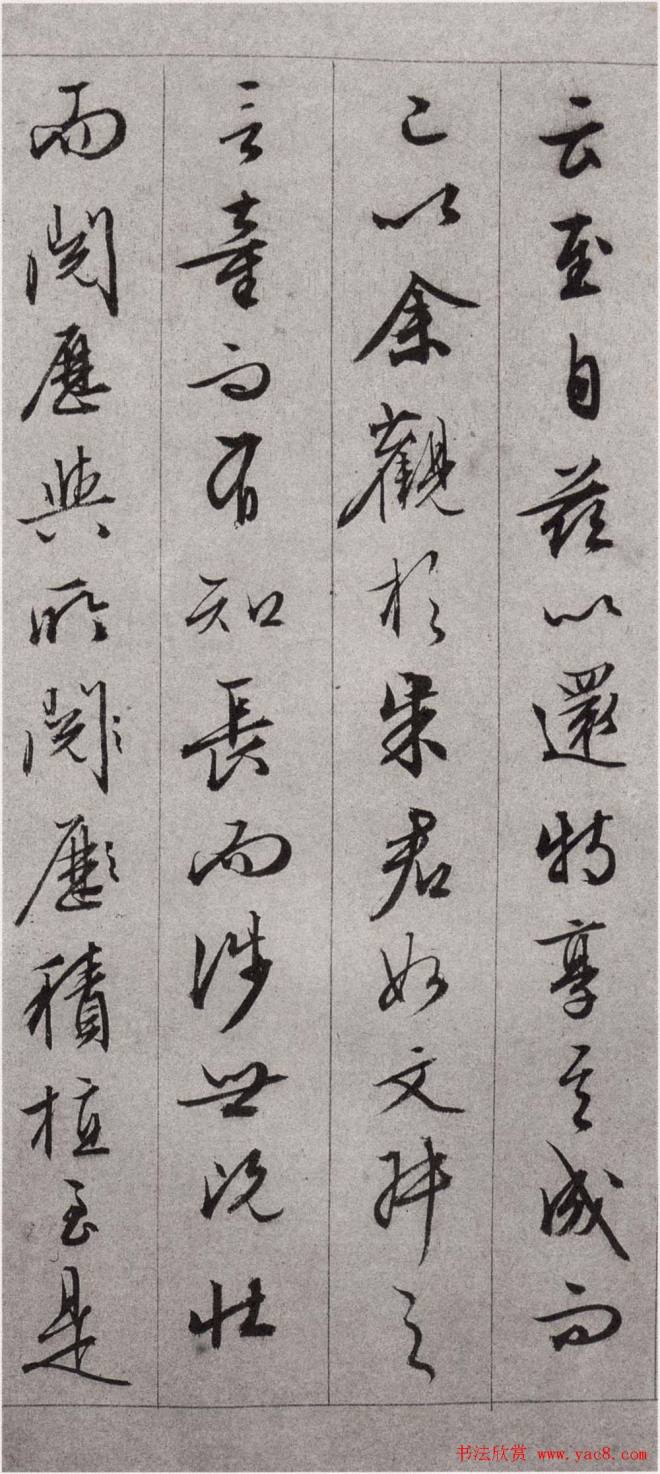 云至自茲以還特享其成而
已以余觀於朱君如文拜之
言童而有知長而涉世況壯
而閱歷與所閱閱歷歷積植至是
书法欣赏 www.yac8.com